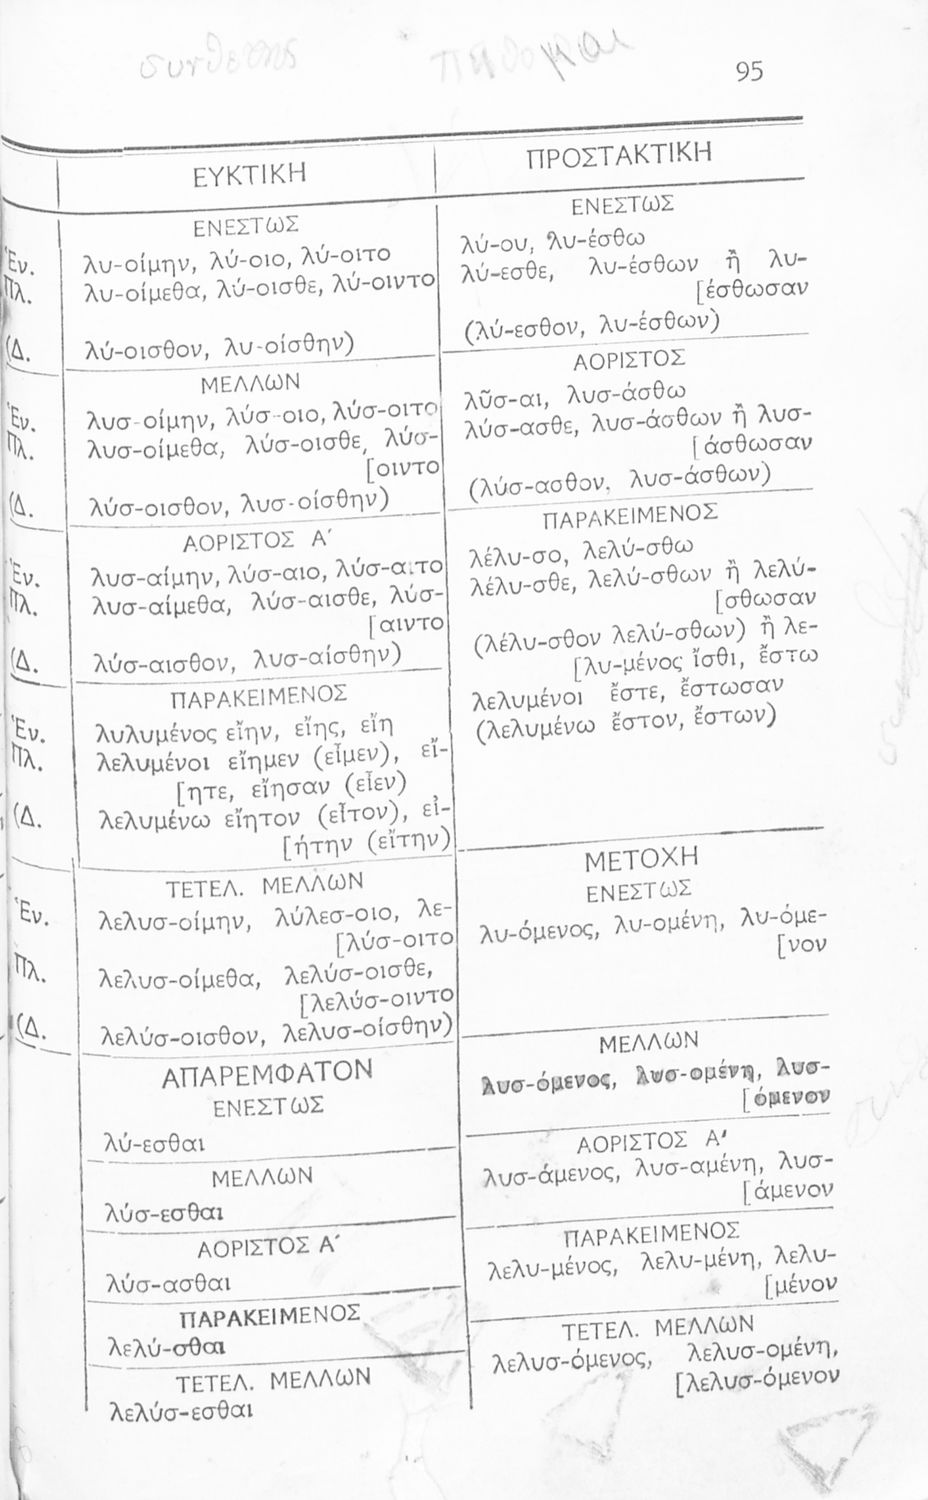 συνθετης
95
ΕΥΚΤΙΚΗ
ΕΝΕΣΤΩΣ
Ἑν. λυ-οίμην, λύ-οιο, λύ-οιτο
Πλ. λυ-οίμεθα, λύ-οισθε, λύ-οιντο
(Δ. λύ-οισθον, λυ-οίσθην)
ΜΕΛΛΩΝ
Ἑν. λυσ-οίμην, λύσ-οιο, λύσ-οιτο
Πλ. λυσ-οίμεθα, λύσ-οισθε, λύσ-
[οιντο
(Δ. λύσ-οισθον, λυσ-οίσθην)
ΑΟΡΙΣΤΟΣ Α΄
Ἑν. λυσ-αίμην, λύσ-αιο, λύσ-αιτο
Πλ. λυσ-αίμεθα, λύσ-αισθε, λύσ-
[αιντο
(Δ. λύσ-αισθον, λυσ-αίσθην)
ΠΑΡΑΚΕΙΜΕΝΟΣ
Ἑν. λυλυμένος εἴην, εἴης, εἴη
Πλ. λελυμένοι εἴημεν (εἶμεν), εἴ-
[ητε, εἴησαν (εἶεν)
(Δ. λελυμένω εἴητον (εἶτον), εἰ-
[ήτην (εἴτην)
ΤΕΤΕΛ. ΜΕΛΛΩΝ
Ἑν. λελυσ-οίμην, λύλεσ-οιο, λε-
[λύσ-οιτο
Πλ. λελυσ-οίμεθα, λελύσ-οισθε,
[λελύσ-οιντο
(Δ. λελύσ-οισθον, λελυσ-οίσθην)
ΑΠΑΡΕΜΦΑΤΟΝ
ΕΝΕΣΤΩΣ
λύ-εσθαι
ΜΕΛΛΩΝ
λύσ-εσθαι
ΑΟΡΙΣΤΟΣ Α΄
λύσ-ασθαι
ΠΑΡΑΚΕΙΜΕΝΟΣ
λελύ-σθαι
ΤΕΤΕΛ. ΜΕΛΛΩΝ
λελύσ-εσθαι
ΠΡΟΣΤΑΚΤΙΚΗ
ΕΝΕΣΤΩΣ
λύ-ου, λυ-έσθω
λύ-εσθε, λυ-έσθων ἢ λυ-
[έσθωσαν
(λύ-εσθον, λυ-έσθων)
ΑΟΡΙΣΤΟΣ
λῦσ-αι, λυσ-άσθω
λύσ-ασθε, λυσ-άσθων ἢ λυσ-
[άσθωσαν
(λύσ-ασθον, λυσ-άσθων)
ΠΑΡΑΚΕΙΜΕΝΟΣ
λέλυ-σο, λελύ-σθω
λέλυ-σθε, λελύ-σθων ἢ λελύ-
[σθωσαν
(λέλυ-σθον λελύ-σθων) ἢ λε-
[λυ-μένος ἴσθι, ἔστω
λελυμένοι ἔστε, ἔστωσαν
(λελυμένω ἔστον, ἔστων)
ΜΕΤΟΧΗ
ΕΝΕΣΤΩΣ
λυ-όμενος, λυ-ομένη, λυ-όμε-
[νον
ΜΕΛΛΩΝ
λυσ-όμενος, λυσ-ομένη, λυσ-
[όμενον
ΑΟΡΙΣΤΟΣ Α΄
λυσ-άμενος, λυσ-αμένη, λυσ-
[άμενον
ΠΑΡΑΚΕΙΜΕΝΟΣ
λελυ-μένος, λελυ-μένη, λελυ-
[μένον
ΤΕΤΕΛ. ΜΕΛΛΩΝ
λελυσ-όμενος, λελυσ-ομένη,
[λελυσ-όμενον